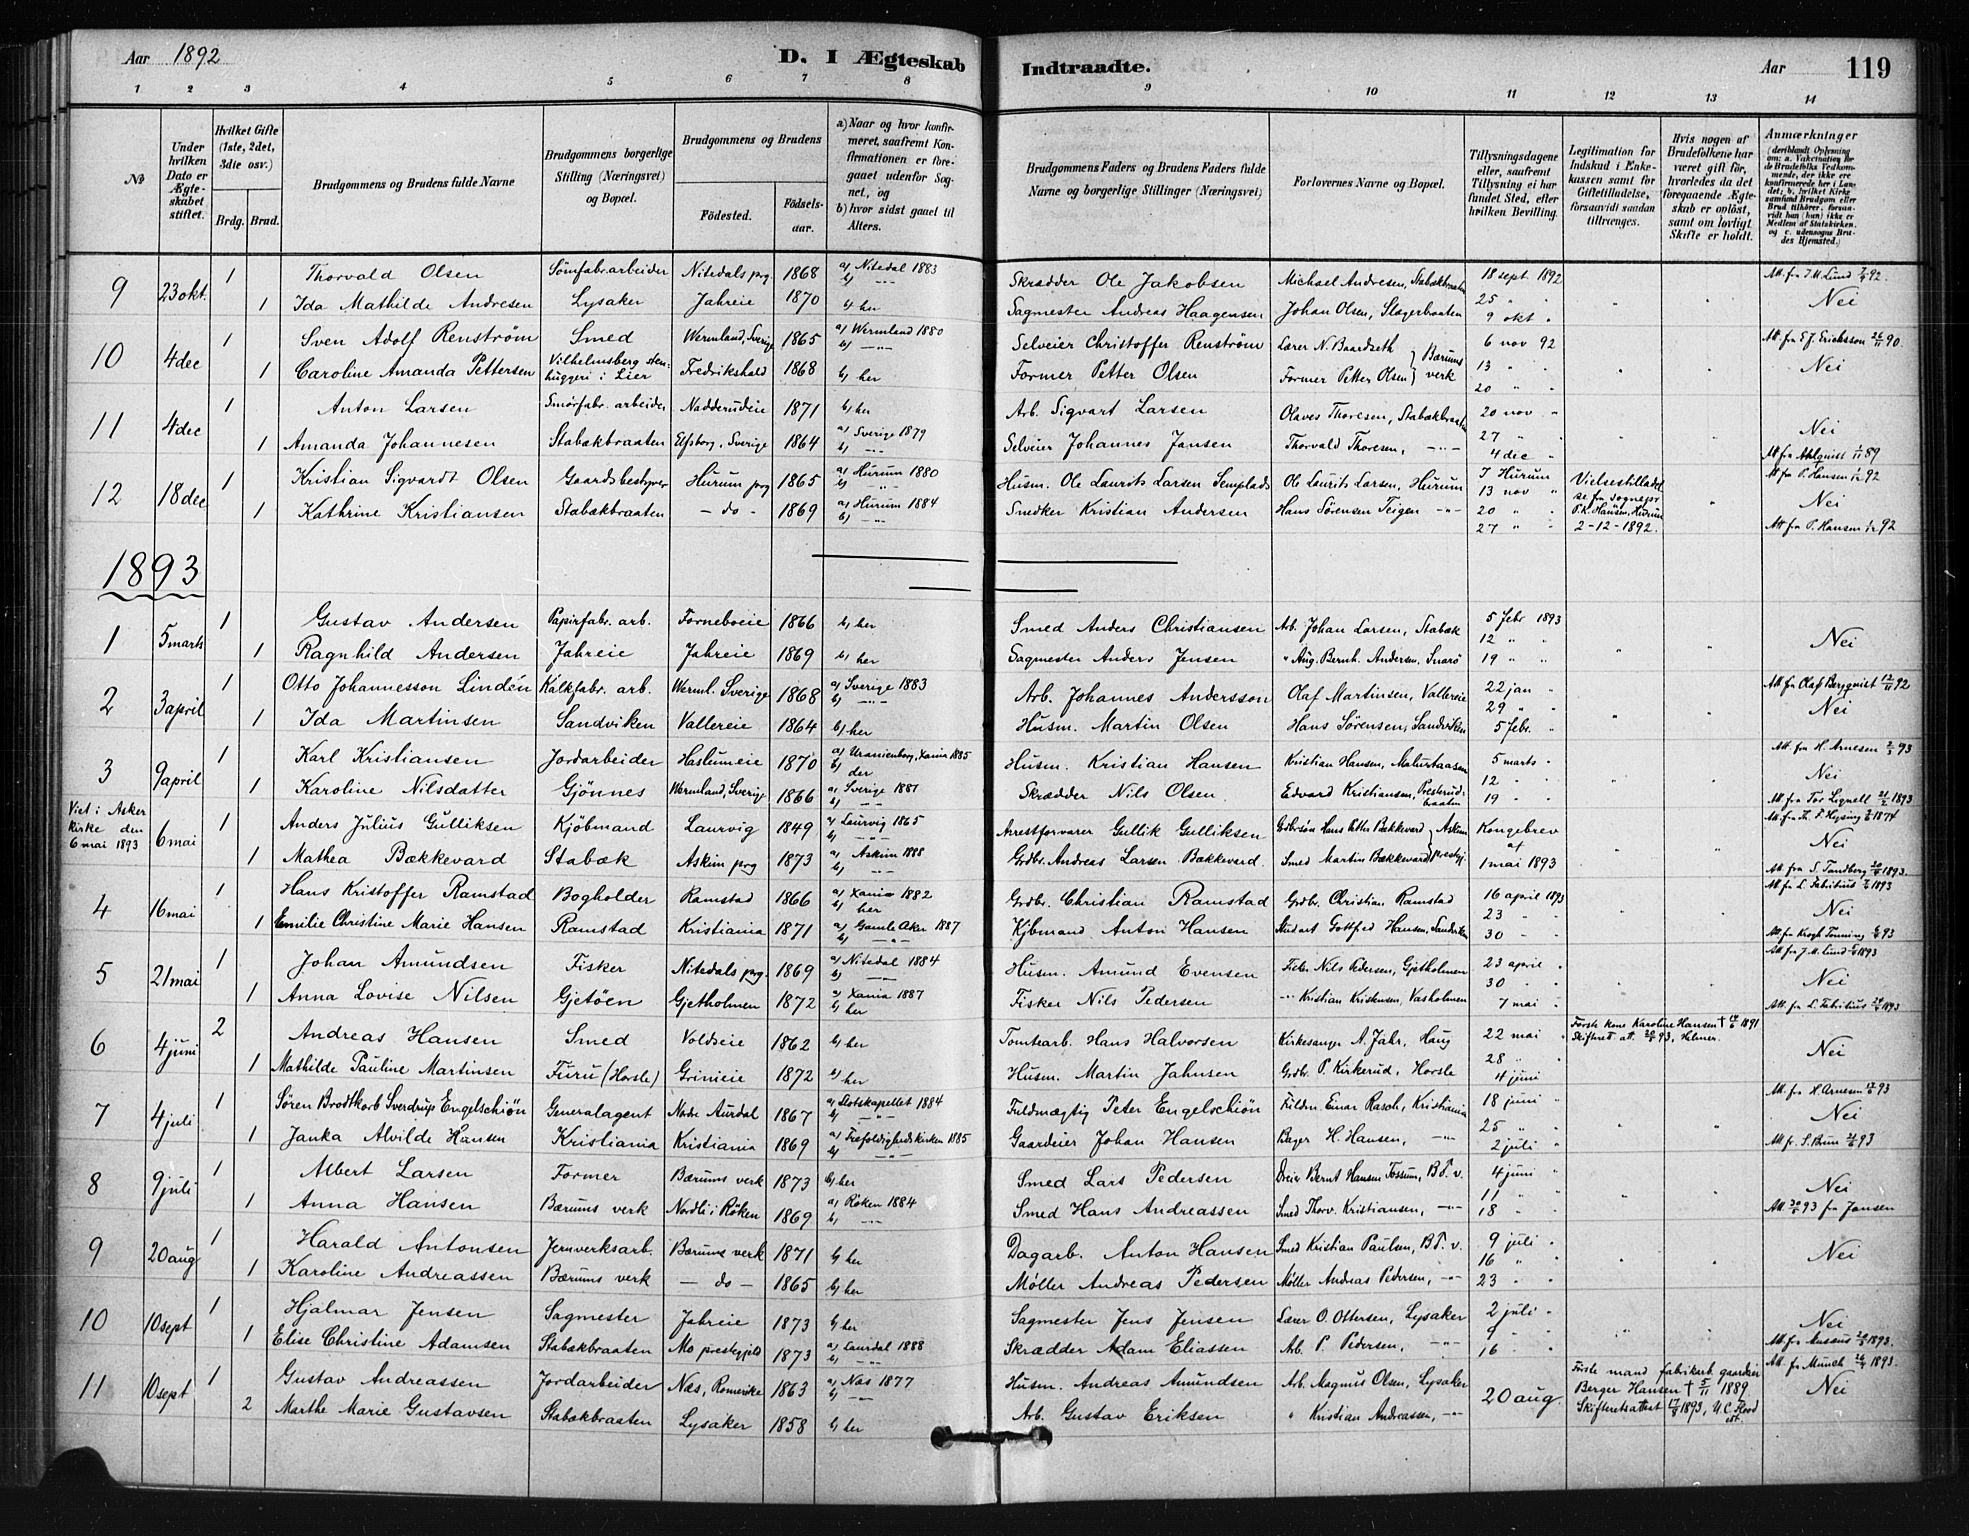 Aar 1892 D. I Ægteskab Indtraadte. Aar 119
1 2 3 4 5 6 7 8 9 10 11 12 13 14
No
Under hvilken Dato er Ægteskabet stiftet.
Hvilket Gifte (1ste, 2det, 3die osv.)
Brdg. Brud.
Brudgommens og Brudens fulde Navne
Brudgommens borgerlige Stilling (Næringsvei) og Bopæl.
Brudgommens og Brudens
Födested. Födsels-aar.
a) Naar og hvor konfirmeret, saafremt Konfirmationen er foregaaet udenfor Sognet, og
b) hvor sidst gaaet til Alters.
Brudgommens Faders og Brudens Faders fulde Navne og borgerlige Stillinger (Næringsvei)
Forlovernes Navne og Bopæl.
Tillysningsdagene eller, saafremt Tillysning ei har fundet Sted, efter hvilken Bevilling.
Legitimation for Indskud i Enkekassen samt for Giftetilladelse, forsaavidt saadan tiltrænges.
Hvis nogen af Brudefolkene har været gift för, hvorledes da det foregaaende Ægteskab er oplöst, samt om lovligt Skifte er holdt.
Anmærkninger
9 23 okt. 1 Thorvald Olsen Sömfabr.arbeider Nitedals prg. 1868 a) Nitedal 1883 b) -"- Skrædder Ole Jakobsen Michael Andresen, Stabækbraaten 18 sept 1892 Att. fra J. M. Lund 7/9 92.
1 Ida Mathilde Andresen Lysaker Jahreie 1870 b) her Sagmester Andreas Haagensen Johan Olsen, Slagerbraaten 25 " " Nei
9 okt "
10 4 dec 1 Sven Adolf Renström Smed Wermland, Sverige 1865 a) Wermland 1880 b) -"- Selveier Christoffer Renström Lærer N. Baardseth } Bærums verk 6 nov 92 Att. fra E. J. Ericksson 26/11 90.
1 Caroline Amanda Pettersen Vilhelmsberg stenhuggeri i Lier Fredrikshald 1868 b) her Former Petter Olsen Former Petter Olsen 13 " " Nei
20 " "
11 4 dec 1 Anton Larsen Smörfabr. arbeider Nadderudeie 1871 b) her Arb. Sigvart Larsen Olaves Thoresen, Stabækbraaten 20 nov "
1 Amanda Johannesen Stabækbraaten Elfsborg, Sverige 1864 a) Sverige 1879 b) -"- Selveier Johannes Jansen Thorvald Thoresen, -"- 27 " " Nei
4 dec " Att fra Ahlquist 1/11 89
12 18 dec 1 Kristian Sigvardt Olsen Gaardsbestyrer Hurum prg 1865 a) Hurum 1880 b) -"- Husm. Ole Laurits Larsen Semplads Ole Laurits Larsen, Hurum I Hurum 13 nov " Vielsestilladelse fra sognepr. P. K. Hansen, Hurum 2-12-1892. Att fra P. Hansen 1/12 92
1 Kathrine Kristiansen Stabækbraaten - do - 1869 a) Hurum 1884 b) -"- Snedker Kristian Andersen Hans Sörensen Teigen -"- 20 " " Nei
27 " " Att fra P. Hansen 1/12 92
1893
1 5 marts 1 Gustav Andersen Papirfabr. arb. Forneboeie 1866 b) her Smed Anders Christiansen Arb. Johan Larsen, Stabæk 5 febr 1893
1 Ragnhild Andersen Jahreie Jahreie 1869 b) her Sagmester Anders Jensen " Aug. Bernh. Andersen, Snarö 12 " " Nei
19 " "
2 3 april 1 Otto Johannesson Lindén Kalkfabr. arb. Werml. Sverige 1868 a) Sverige 1883 b) -"- Arb. Johannes Andersson Olaf Martinsen, Vallereie 22 jan " Att fra Olaf Bergquist 12/11 92
1 Ida Martinsen Sandviken Vallereie 1864 b) her Husm. Martin Olsen Hans Sörensen, Sandviken 29 " " Nei
5 febr. "
3 9 april 1 Karl Kristiansen Jordarbeider Haslumeie 1870 a) Uranienborg, Xania 1885 b) der Husm. Kristian Hansen Kristian Hansen, Malurtaasen 5 marts " Att. fra H. Arnesen 2/3 93
1 Karoline Nilsdatter Gjönnes Wermland, Sverige 1866 a) Sverige 1881 b) -"- Skrædder Nils Olsen Edvard Kristiansen, Presterudbraaten 12 " " Nei
19 " " Att fra Tor Lignell 21/2 1893
Viet i Asker kirke den 6 mai 1893 6 mai 1 Anders Julius Gulliksen Kjöbmand Laurvig 1849 a) Laurvig 1865 b) -"- Arrestforvarer Gullik Gulliksen Gdbrsön Hans Petter Bækkevard } Askim prestgj. Kongebrev af 1 mai 1893
1 Mathea Bækkevard Stabæk Askim prg 1873 a) Askim 1888 b) -"- Grdbr. Andreas Larsen Bækkevard. Smed Martin Bækkevard Nei
Att fra S. Tandberg
4 16 mai 1 Hans Kristoffer Ramstad Bogholder Ramstad 1866 a) Xania 1882 b) her Grdbr. Christian Ramstad Grdbr. Christian Ramstad 16 april 1893 Att fra L. Fabritius
1 Emilie Christine Marie Hansen Ramstad Kristiania 1871 a) Gamle Aker 1887 b) -"- Kjbmand Anton Hansen Student Gottfred Hansen, Sandviken 23 " " Nei
30 " " Att fra Krogh Tonning
5 21 mai 1 Johan Amundsen Fisker Nitedals prg. 1869 a) Nitedal 1884 b) -"- Husm. Amund Evensen Fisker Nils Pedersen, Gjetholmen 23 april " Att fra J. M. Lund
1 Anna Lovise Nilsen Gjetöen Gjetholmen 1872 a) Xania 1887 b) her Fisker Nils Pedersen -"- Kristian Kristensen, Vasholmen 30 " " Nei
7 mai " Att. fra L. Fabritius
6 4 juni 2 Andreas Hansen Smed Voldseie 1862 b) her Tomtearb. Hans Halvorsen Kirkesanger A. Jahr, Haug 22 mai " Förste kone Karoline Hansen † 1891 Skifteret. att. 93, Helmer.
1 Mathilde Pauline Martinsen Furu (Horsle) Grinieie 1872 b) her Husm. Martin Jahnsen Grdbr. P. Kirkerud, Horsle 28 " " Nei
4 juni
7 4 juli 1 Sören Brodtkorb Sverdrup Engelschiön Generalagent Nordre Aurdal 1867 a) Slotskapellet 1884 b) -"- Fuldmægtig Peter Engelschiön Fuldm. Einar Rasch, Kristiania 18 juni " Att. fra H. Arnesen
1 Janka Alvilde Hansen Kristiania Kristiania 1869 a) Trefoldighedskirken 1885 b) -"- Gaardeier Johan Hansen Bager H. Hansen, -"- 25 " " Nei
2 juli " Att fr. S. Brun
8 9 juli 1 Albert Larsen Former Bærums verk 1873 b) her Smed Lars Pedersen Dreier Bernt Hansen Fossum, B. v. 4 juni "
1 Anna Hansen Bærums verk Nordli i Röken 1869 a) Röken 1884 b) -"- Smed Hans Andreassen Smed Thorv. Kristiansen, -"- 11 " " Nei
18 " " Att. 93 fra Jansen
9 20 aug 1 Harald Antonsen Jernverksarb. Bærums verk 1871 b) her Dagarb. Anton Hansen Smed Kristian Paulsen, B. v. 9 juli "
1 Karoline Andreassen Bærums verk - do - 1865 b) her Möller Andreas Pedersen Möller Andreas Pedersen, -"- 16 " " Nei
23 " "
10 10 sept 1 Hjalmar Jensen Sagmester Jahreie 1873 b) her Sagmester Jens Jensen Lærer O. Ottersen, Lysaker 2 juli "
1 Elise Christine Adamsen Stabækbraaten Mo prestegjeld 1873 a) Laurdal 1888 b) -"- Skrædder Adam Eliassen Arb. P. Pedersen, -"- 9 " " Nei
16 " " Att. fra Musæus 1893.
11 10 sept 1 Gustav Andreassen Jordarbeider Næs, Romerike 1863 a) Næs 1877 b) -"- Husm. Andreas Amundsen Arb. Magnus Olsen, Lysaker 20 aug. Förste mand fabrikarb. gaardeier Berger Hansen † 5/11 1889. Skifteretsattest 17/8 1893, U. C. Flood Att. fra Munch 1893.
2 Marthe Marie Gustavsen Stabækbraaten Lysaker 1858 b) her Arb. Gustav Eriksen " Kristian Andreassen, -"- Nei